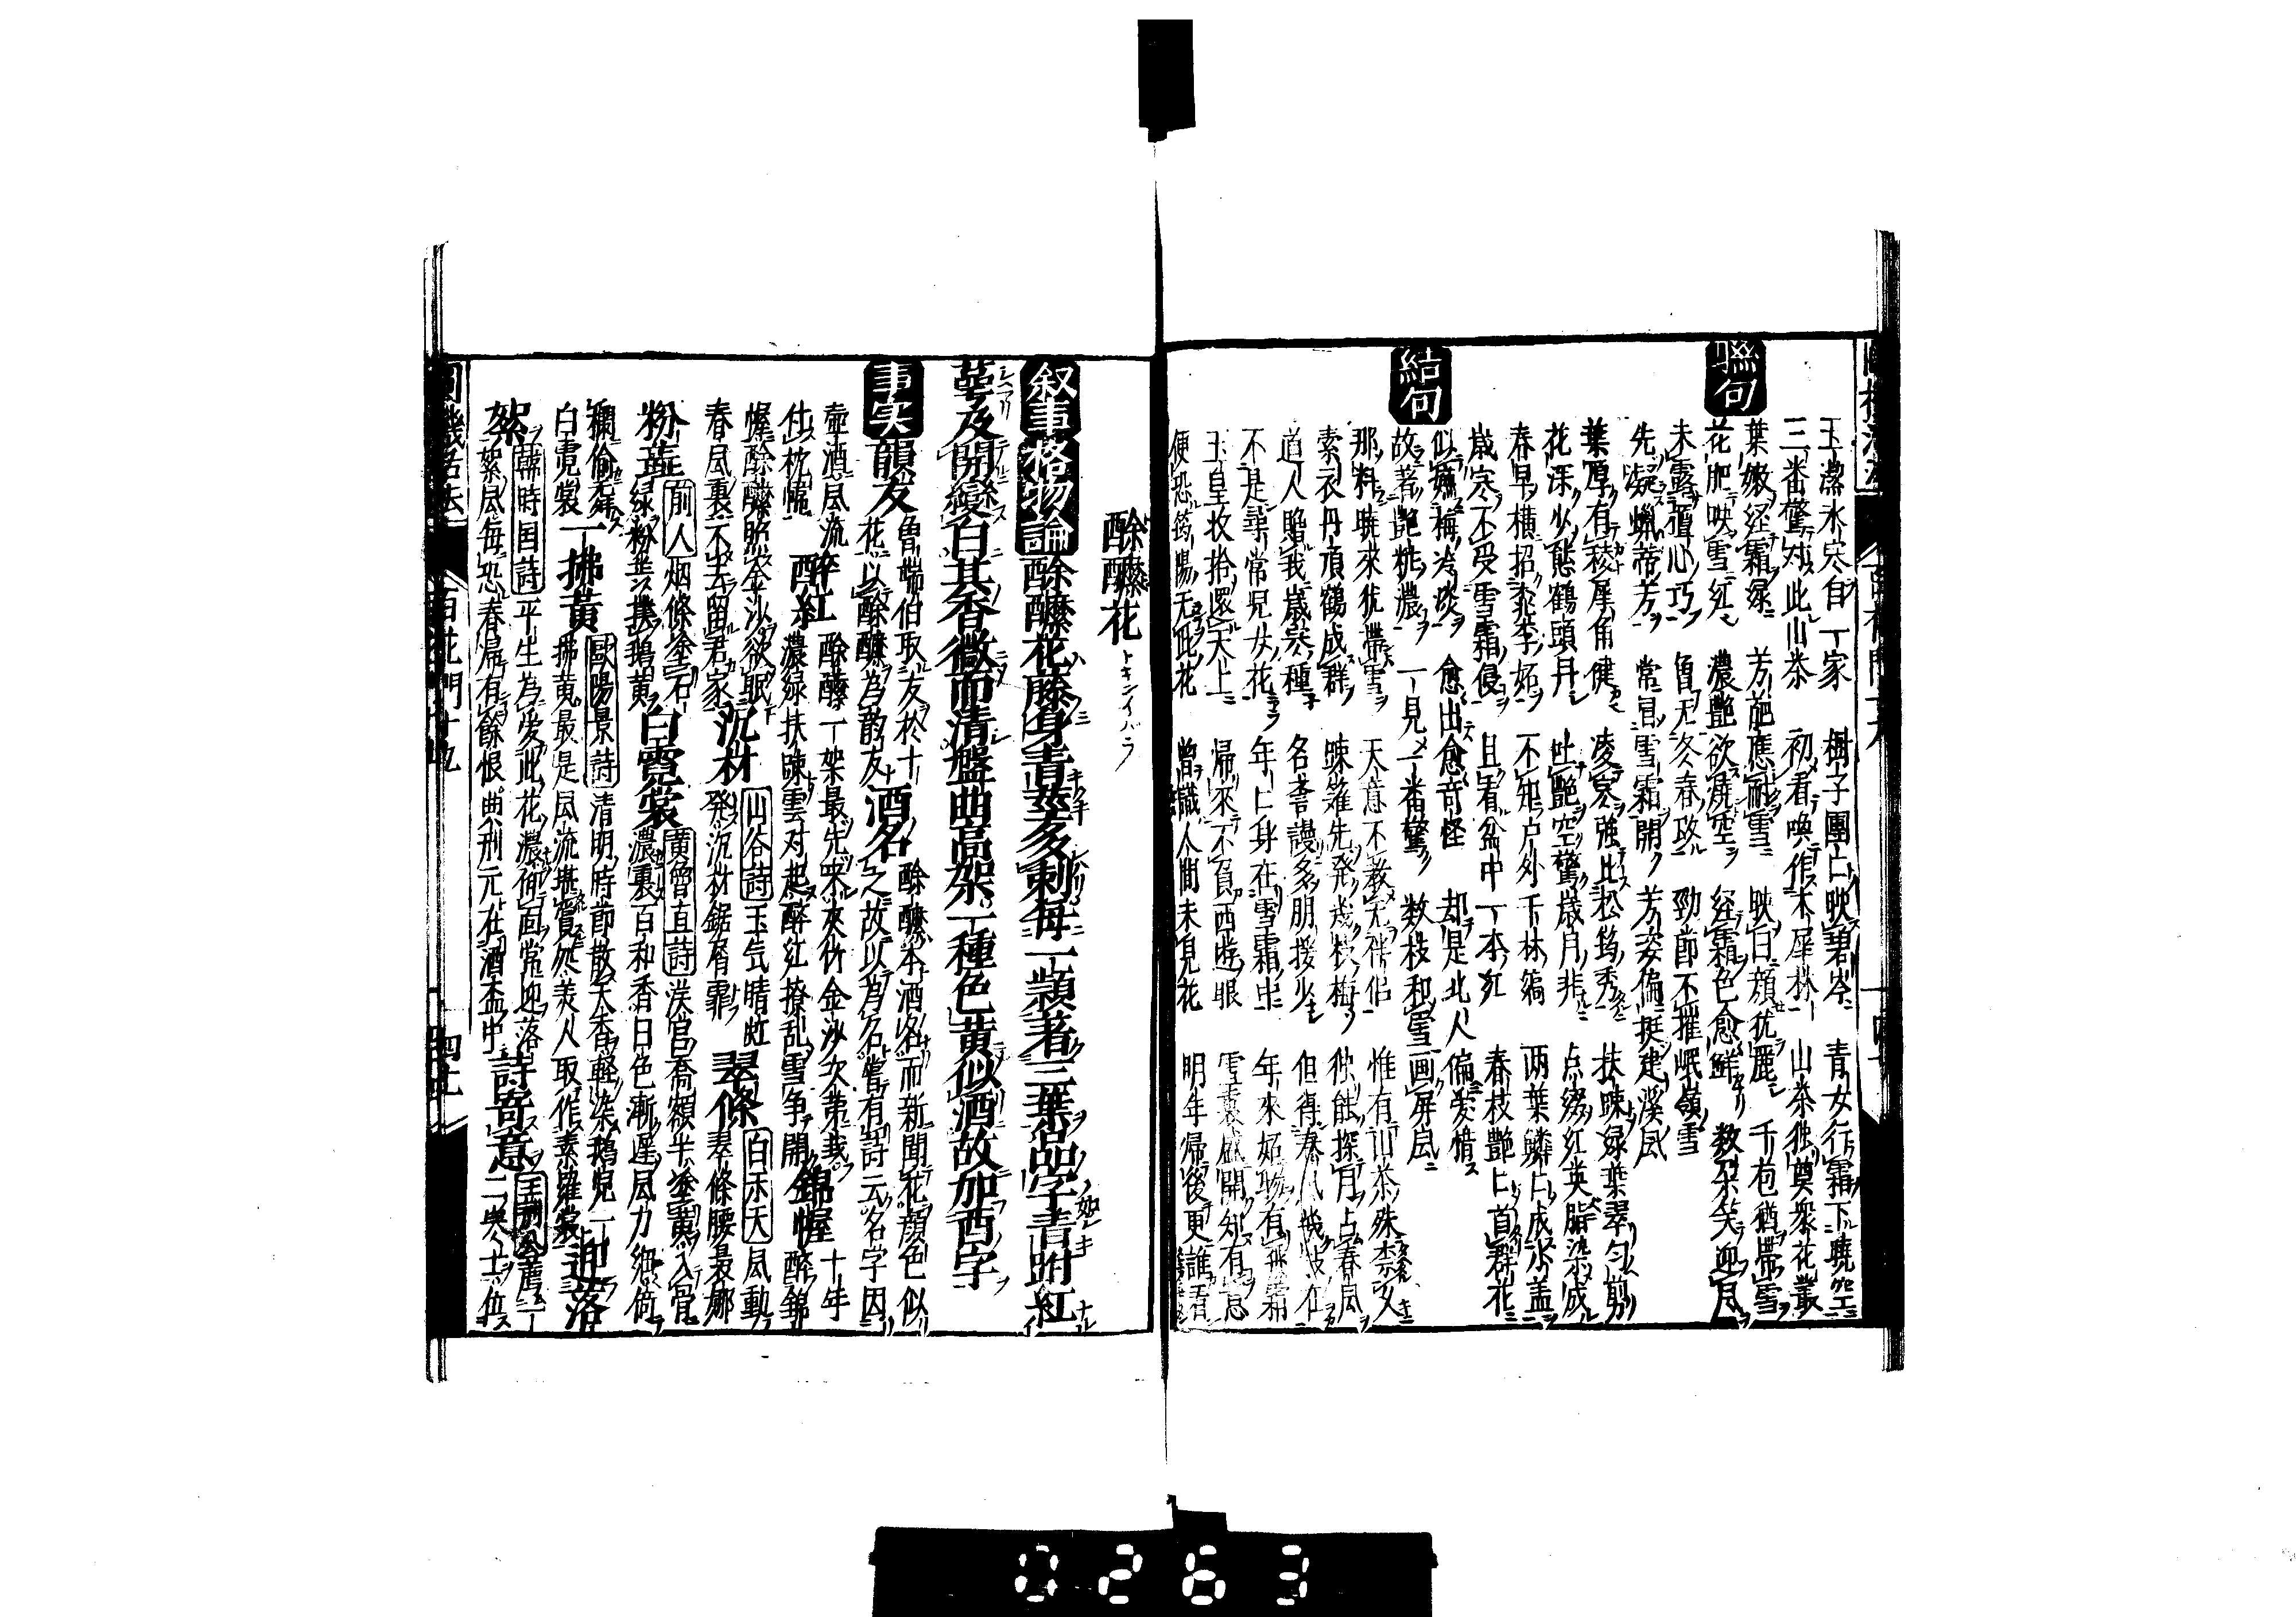 玉潔氷寒自一家　樹子團々映碧岑　青女行霜下曉空
三番驚對此山茶　初看喚作木犀林　山茶独奠衆花叢
聯句
葉嫩経霜緑　芳葩應耐雪　映白顔犹麗　千包猶帯雪
花肥映雪紅　濃艶欲燒空　経霜色愈鮮　数朶笑迎風
未露檀心巧　曾无冬春改　勁節不摧岷嶺雪
先凝蠟蒂芳　常冒雪霜開　芳姿偏挺建溪風
葉厚有稜犀角健　凌寒強比松筠秀　扶踈緑葉翠匀剪
花深少態鶴頭丹　吐艶空驚歳月非　点綴紅英脂染成
春早横招桃李妬　不知户外千林縞　两葉鱗々成氷盖
歳寒不受雪霜侵　且看盆中一本紅　春枝艶々首群花
結句
似嫌梅冷淡　愈出愈竒怪　却是北人偏愛惜
故著艶粧濃　一見一番驚　数枝和雪画屏風
那料曉來犹帯雪　天意不教无伴侣　惟有山茶殊柰久
素衣丹頂鶴成群　踈籬先発幾枝梅　獨能探月占春風
道人贈我歳寒種　名斎謾多朋援少　但得春風幾枝在
不是尋常兒女花　年々身在雪霜中　年來妬物有飛霜
玉皇收拾還天上　帰來不負西遊眼　雪裏盛開知有意
便恐筠陽无此花　曾識人間未見花　明年帰後更誰看
酴醿花　トキンイバラ
叙事　格物論　酴醿花藤身青莖多刺毎一頴著三葉品字青跗紅
萼及開變白其香微而清盤曲高架一種色黄似酒故加酉字
事実　韻友　曾端伯取友於十花以酴醿為韵友　酒名　酴醿本酒名而新聞花顔色似之故以為名嘗有詩云名字因
壷酒風流付枕幃　醉紅　酴醿一架最先來夾竹金沙次第栽濃緑扶踈雲对起醉紅撩乱雪争開　錦幄　十年醉錦
幄酴醿照金沙欲眠春風裏不去留君家　沉材　発沉材鋸屑霏　山谷詩　玉気晴虹　翠條　白禾天　風動翠條腰最娜
粉蘂　前人　烟條塗石緑粉蘂撲鵝黄　白霓裳　黄曾直詩　漢宫喬額半塗黄入骨濃裏百和香日色漸遲風力細倚
欄偷舞白霓裳　一拂黄　歐陽景詩　清明時節散天香軽染鵝兒一拂黄最是風流堪賞處美人取作素羅裳　迎落
絮　韓時国詩　平生為愛此花濃仰面常迎落絮風毎恐春帰有餘恨典刑元在酒盃中　詩寄意　王荊公　二與士位
圓機活法　百花門十九　四七